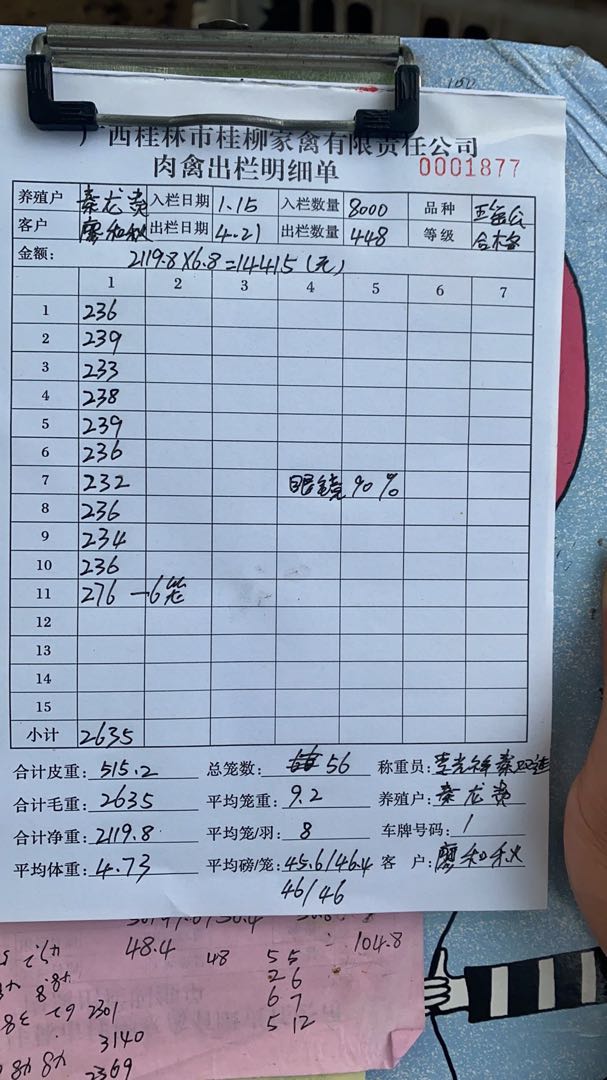 广西桂林市桂柳家禽有限责任公司
肉禽出栏明细单 0001877
养殖户 秦龙贵 入栏日期 1.15 入栏数量 8000 品种
客户 廖和秋 出栏日期 4.21 出栏数量 448 等级 合格
金额: 2119.8×6.8=14415(元)
1 2 3 4 5 6 7
1 236
2 239
3 233
4 238
5 239
6 236
7 232 眼镜90%
8 236
9 234
10 236
11 276 -6笼
12
13
14
15
小计 2635
合计皮重: 515.2 总笼数: 56 称重员:
合计毛重: 2635 平均笼重: 9.2 养殖户: 秦龙贵
合计净重: 2119.8 平均笼/羽: 8 车牌号码: 1
平均体重: 4.73 平均磅/笼: 45.6/46.4 客 户: 廖和秋
46/46
48.4 48 5 5 104.8
2 6
6 7
2301 5 12
3140
2369